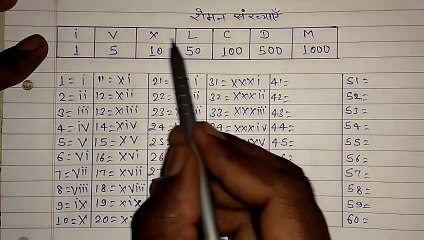 रोमन संख्याएँ
i V X L C D M
1 5 10 50 100 500 1000
1 = i 11 = xi 21 = 31 = xxxi 41 = 51 =
2 = ii 12 = xii 22 = 32 = xxxii 42 = 52 =
3 = iii 13 = xiii 23 = 33 = xxxiii 43 = 53 =
4 = iv 14 = xiv 24 xxxiv 44 = 54 =
5 = v 15 = xv 25 45 = 55 =
6 = vi 16 = xvi 56 =
7 = vii 17 = xvii 57 =
8 = viii 18 = xviii 58 =
9 = ix 19 = xix 59 =
10 = x 20 = 60 =